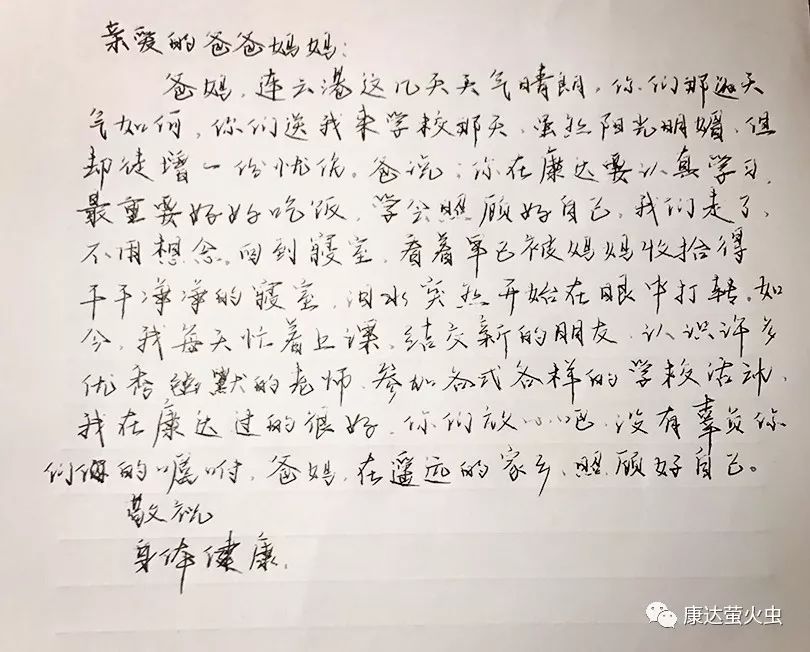 亲爱的爸爸妈妈：
爸妈，连云港这几天天气晴朗，你们那边天
气如何，你们送我来学校那天，虽然阳光明媚，但
却徒增一份忧伤。爸说：你在康达要认真学习，
最重要好好吃饭，学会照顾好自己，我们走了，
不用想念。回到寝室，看着早已被妈妈收拾得
干干净净的寝室，泪水突然开始在眼中打转。如
今，我每天忙着上课，结交新的朋友，认识许多
优秀幽默的老师，参加各式各样的学校活动，
我在康达过的很好，你们放心吧，没有辜负你
们的嘱咐，爸妈，在遥远的家乡，照顾好自己。
敬祝
身体健康，
康达萤火虫